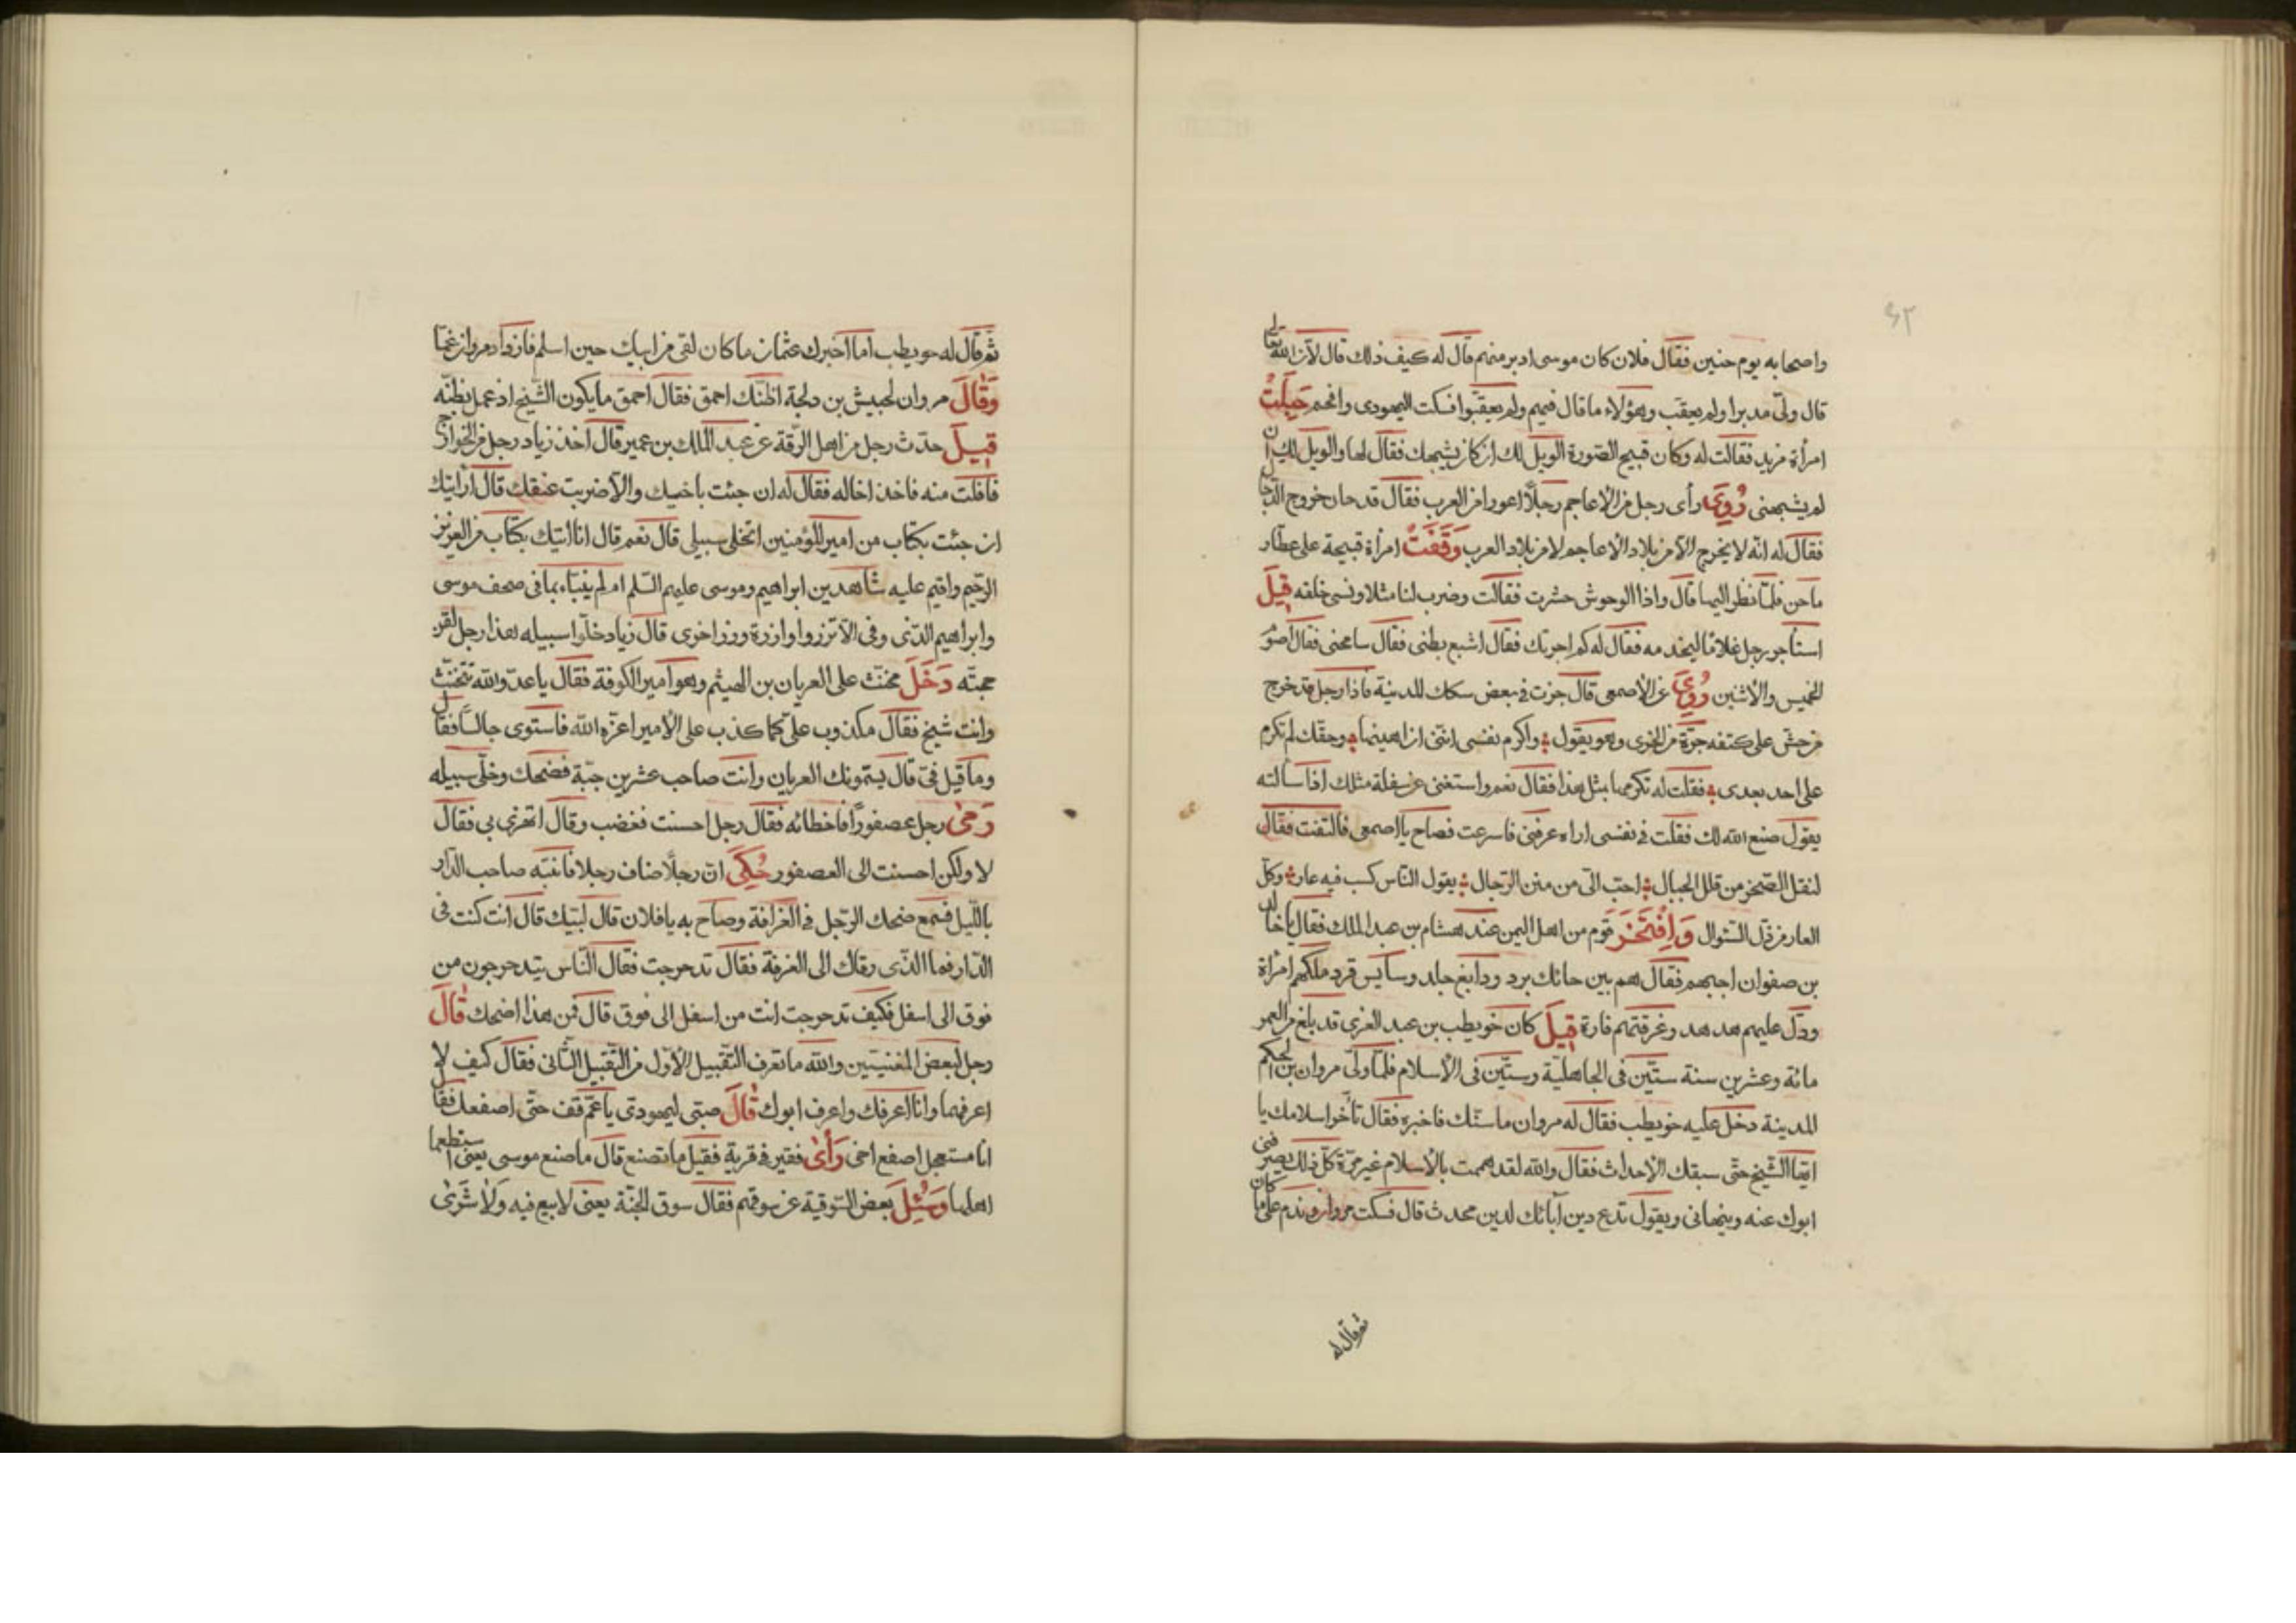 ٤٢
واصحابه يوم حنين فقال فلان كان موسى ادبر منهم قال له كيف ذلك قال لان الله تعالى
قال ولّى مدبرا ولم يعقب وهؤلاء ما قال فيهم ولم يعقّبوا فسكت اليهودى وانحم حبلت
امرأة مزيد فقالت له وكان قبيح الصورة الويل لك ان كان يشبهك فقال لها والويل لك ان
لم يشبهنى رُوِىَ رأى رجل من الاعاجم رجلاً اعور من العرب فقال قد حان خروج الدّجال
فقال له انّه لا يخرج الّا من بلاد الاعاجم لا من بلاد العرب وَقَفَتْ امرأة قبيحة على عطار
ماجن فلمّا نظر اليها قال واذا الوحوش حشرت فقالت وضرب لنا مثلا ونسى خلقه قِيلَ
استأجر رجل غلامًا ليخدمه فقال له كم اجرتك فقال اشبع بطنى فقال سامحنى فقال اصوم
الخميس والاثنين رُوِىَ عن الاصمعى قال جزت فى بعض سكك المدينة فاذا رجل قد خرج
من حش على كتفه جرّة من الخرى وهو يقول واكرم نفسى انّنى ان اهينها وحقّك لم تكرم
على احد بعدى فقلت له تكرمها بمثل هذا فقال نعم واستغنى عن سفلة مثلك اذا سألته
يقول صنع الله لك فقلت فى نفسى اراه عرفنى فاسرعت فصاح يا اصمعى فالتفت فقال
لنقل الصّخر من قلل الجبال احبّ الىّ من منن الرّجال يقول النّاس كسب فيه عار وكلّ
العار من ذلّ السّوال وَافْتَخَرَ قوم من اهل اليمن عند هشام بن عبد الملك فقال يا خالد
بن صفوان اجبهم فقال هم بين حائك برد ودابغ جلد وسايس قرد ملكتهم امرأة
ودلّ عليهم هدهد وغرقتهم فارة قِيلَ كان حويطب بن عبد العزى قد بلغ من العمر
مائة وعشرين سنة ستّين فى الجاهليّة وستّين فى الاسلام فلمّا ولّى مروان بن الحكم
المدينة دخل عليه حويطب فقال له مروان ما سنّك فاخبره فقال تأخر اسلامك يا
ايّها الشّيخ حتّى سبقك الاحداث فقال والله لقد هممت بالاسلام غير مرّة كلّ ذلك يصرفنى
ابوك عنه وينهانى ويقول تدع دين آبائك لدين محدث قال فسكت مروان وندم على ما كان
ثم قال له
ثم قال له حويطب اما اخبرك عثمان ما كان لقى من ابيك حين اسلم فازداد مروان غمّا
وَقَالَ مروان لحبيش بن دلجة اظنّك احمق فقال احمق ما يكون الشّيخ اذ عمل بظنّه
قِيلَ حدّث رجل من اهل الرّقة عن عبد الملك بن عمير قال اخذ زياد رجل من الخوارج
فافلت منه فاخذ اخا له فقال له ان جئت باخيك والّا ضربت عنقك قال ارأيتك
ان جئت بكتاب من امير المؤمنين اتخلى سبيلى قال نعم قال انا اتيك بكتاب من العزيز
الرّحيم واقيم عليه شاهدين ابراهيم وموسى عليهم السّلم ام لم ينبّاء بما فى صحف موسى
وابراهيم الّذى وفى الّا تزروا وازرة وزر اخرى قال زياد خلّوا سبيله هذا رجل لقن
حجته دَخَلَ مخنّث على العريان بن الهيثم وهو امير الكوفة فقال يا عدوّ الله تتخنّث
وانت شيخ فقال مكذوب علىّ كما كذب على الامير اعزّه الله فاستوى جالسًا فقال
وما قيل فىّ قال يسمّونك العريان وانت صاحب عشرين جبّة فضحك وخلّى سبيله
رَمَى رجل عصفورًا فاخطائه فقال رجل احسنت فغضب وقال اتهزى بى فقال
لا ولكن احسنت الى العصفور حُكِىَ انّ رجلاً ضاف رجلا فانتبّه صاحب الدّار
باللّيل فسمع ضحك الرّجل فى الغرافة وصاح به يا فلان قال لبّيك قال انت كنت فى
الدّار فما الّذى رقاك الى الغرفة فقال تدحرجت فقال النّاس يتدحرجون من
فوق الى اسفل فكيف تدحرجت انت من اسفل الى فوق قال فمن هذا اضحك قَالَ
رجل لبعض المغنيّين والله ما تعرف الثّقيل الاوّل من الثّقيل الثّانى فقال كيف لا
اعرفهما وانا اعرفك واعرف ابوك قَالَ صبّى ليهودىّ يا عمّ قف حتّى اصفعك فقال
انا مستعجل اصفع اخى رَأَى فقير فى قرية فقيل ما تصنع قال ما صنع موسى يعنى استطعما
اهلها وَسُئِلَ بعض السّوقية عن سوقهم فقال سوق الجنّة يعنى لا بيع فيه وَلَا شَرَى